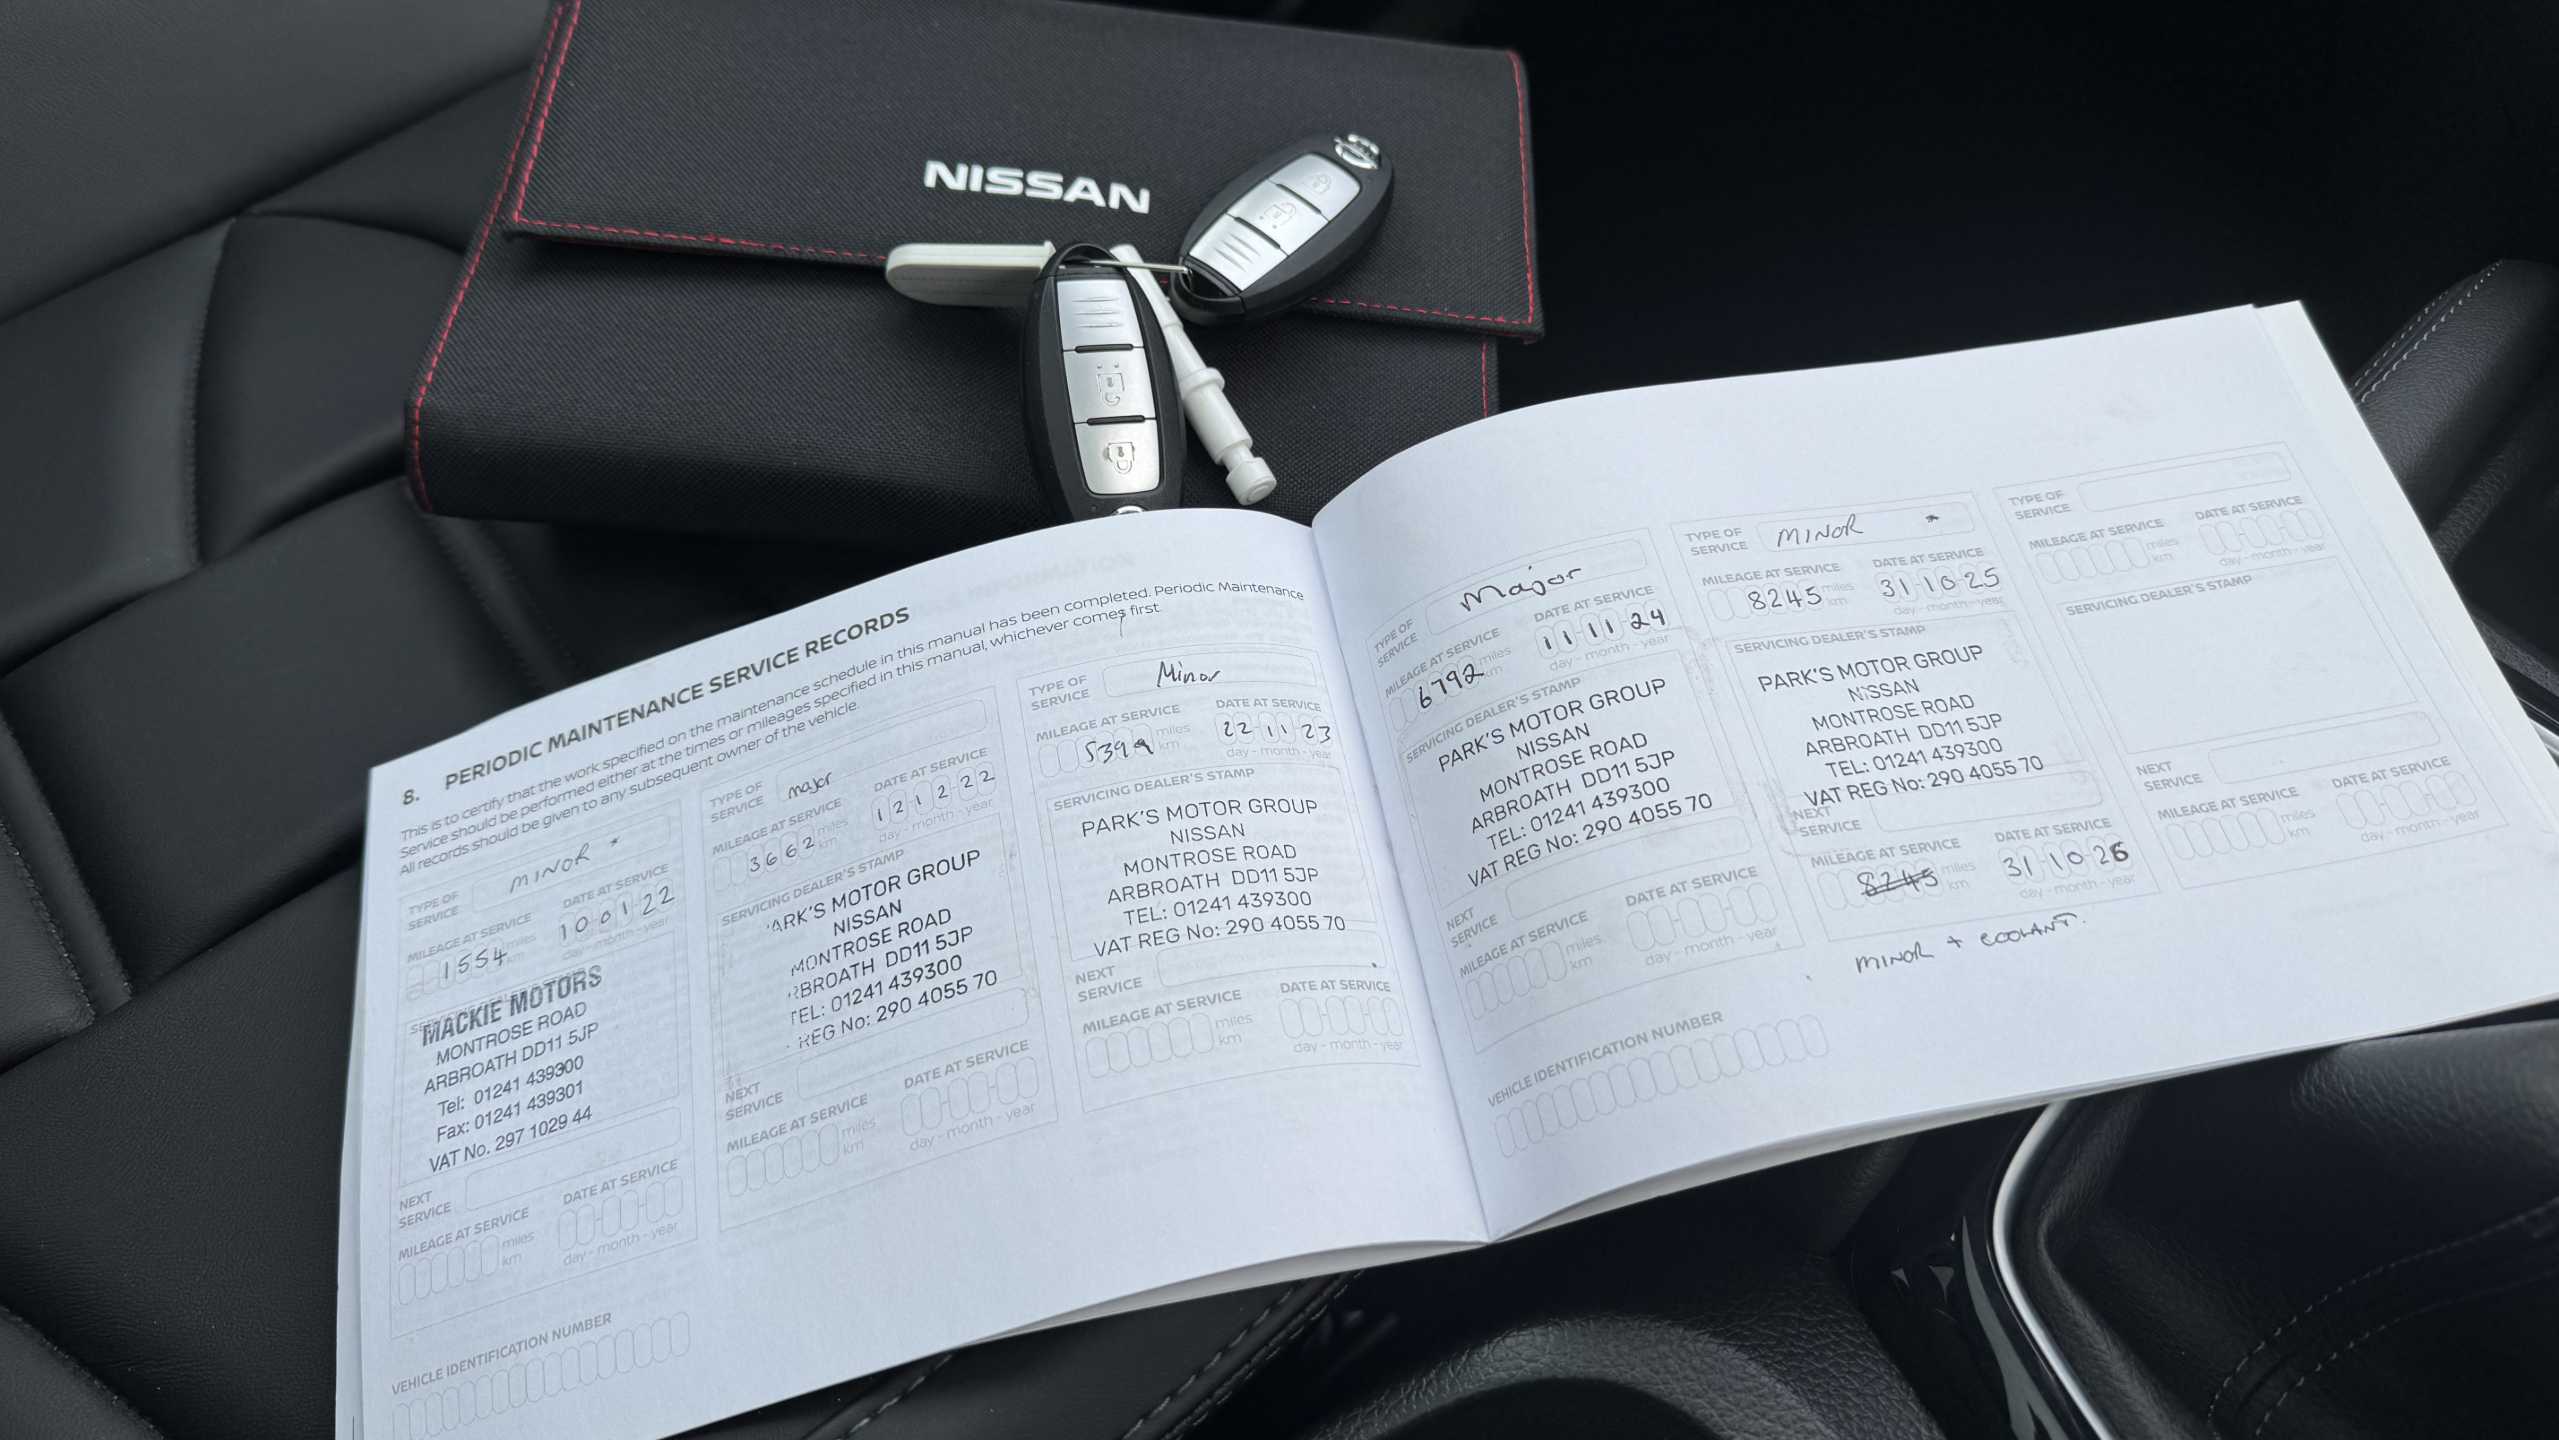 NISSAN
8. PERIODIC MAINTENANCE SERVICE RECORDS
This is to certify that the work specified on the maintenance schedule in this manual has been completed. Periodic Maintenance
Service should be performed either at the times or mileages specified in this manual, whichever comes first.
All records should be given to any subsequent owner of the vehicle.
TYPE OF
SERVICE
MINOR *
MILEAGE AT SERVICE
1554 miles
km
DATE AT SERVICE
10-01-22
day - month - year
MACKIE MOTORS
MONTROSE ROAD
ARBROATH DD11 5JP
Tel: 01241 439300
Fax: 01241 439301
VAT No. 297 1029 44
NEXT
SERVICE
MILEAGE AT SERVICE
miles
km
DATE AT SERVICE
day - month - year
VEHICLE IDENTIFICATION NUMBER
TYPE OF
SERVICE
major
MILEAGE AT SERVICE
3662 miles
km
DATE AT SERVICE
12-12-22
day - month - year
SERVICING DEALER'S STAMP
ARK'S MOTOR GROUP
NISSAN
MONTROSE ROAD
RBROATH DD11 5JP
TEL: 01241 439300
REG No: 290 4055 70
NEXT
SERVICE
MILEAGE AT SERVICE
miles
km
DATE AT SERVICE
day - month - year
TYPE OF
SERVICE
Minor
MILEAGE AT SERVICE
5399 miles
km
DATE AT SERVICE
22-11-23
day - month - year
SERVICING DEALER'S STAMP
PARK'S MOTOR GROUP
NISSAN
MONTROSE ROAD
ARBROATH DD11 5JP
TEL: 01241 439300
VAT REG No: 290 4055 70
NEXT
SERVICE
MILEAGE AT SERVICE
miles
km
DATE AT SERVICE
day - month - year
TYPE OF
SERVICE
Major
MILEAGE AT SERVICE
6792 miles
km
DATE AT SERVICE
11-11-24
day - month - year
SERVICING DEALER'S STAMP
PARK'S MOTOR GROUP
NISSAN
MONTROSE ROAD
ARBROATH DD11 5JP
TEL: 01241 439300
VAT REG No: 290 4055 70
NEXT
SERVICE
MILEAGE AT SERVICE
miles
km
DATE AT SERVICE
day - month - year
VEHICLE IDENTIFICATION NUMBER
TYPE OF
SERVICE
MINOR *
MILEAGE AT SERVICE
8245 miles
km
DATE AT SERVICE
31-10-25
day - month - year
SERVICING DEALER'S STAMP
PARK'S MOTOR GROUP
NISSAN
MONTROSE ROAD
ARBROATH DD11 5JP
TEL: 01241 439300
VAT REG No: 290 4055 70
NEXT
SERVICE
MILEAGE AT SERVICE
8245 miles
km
DATE AT SERVICE
31-10-26
day - month - year
MINOR + COOLANT.
TYPE OF
SERVICE
MILEAGE AT SERVICE
miles
km
DATE AT SERVICE
day - month - year
SERVICING DEALER'S STAMP
NEXT
SERVICE
MILEAGE AT SERVICE
miles
km
DATE AT SERVICE
day - month - year